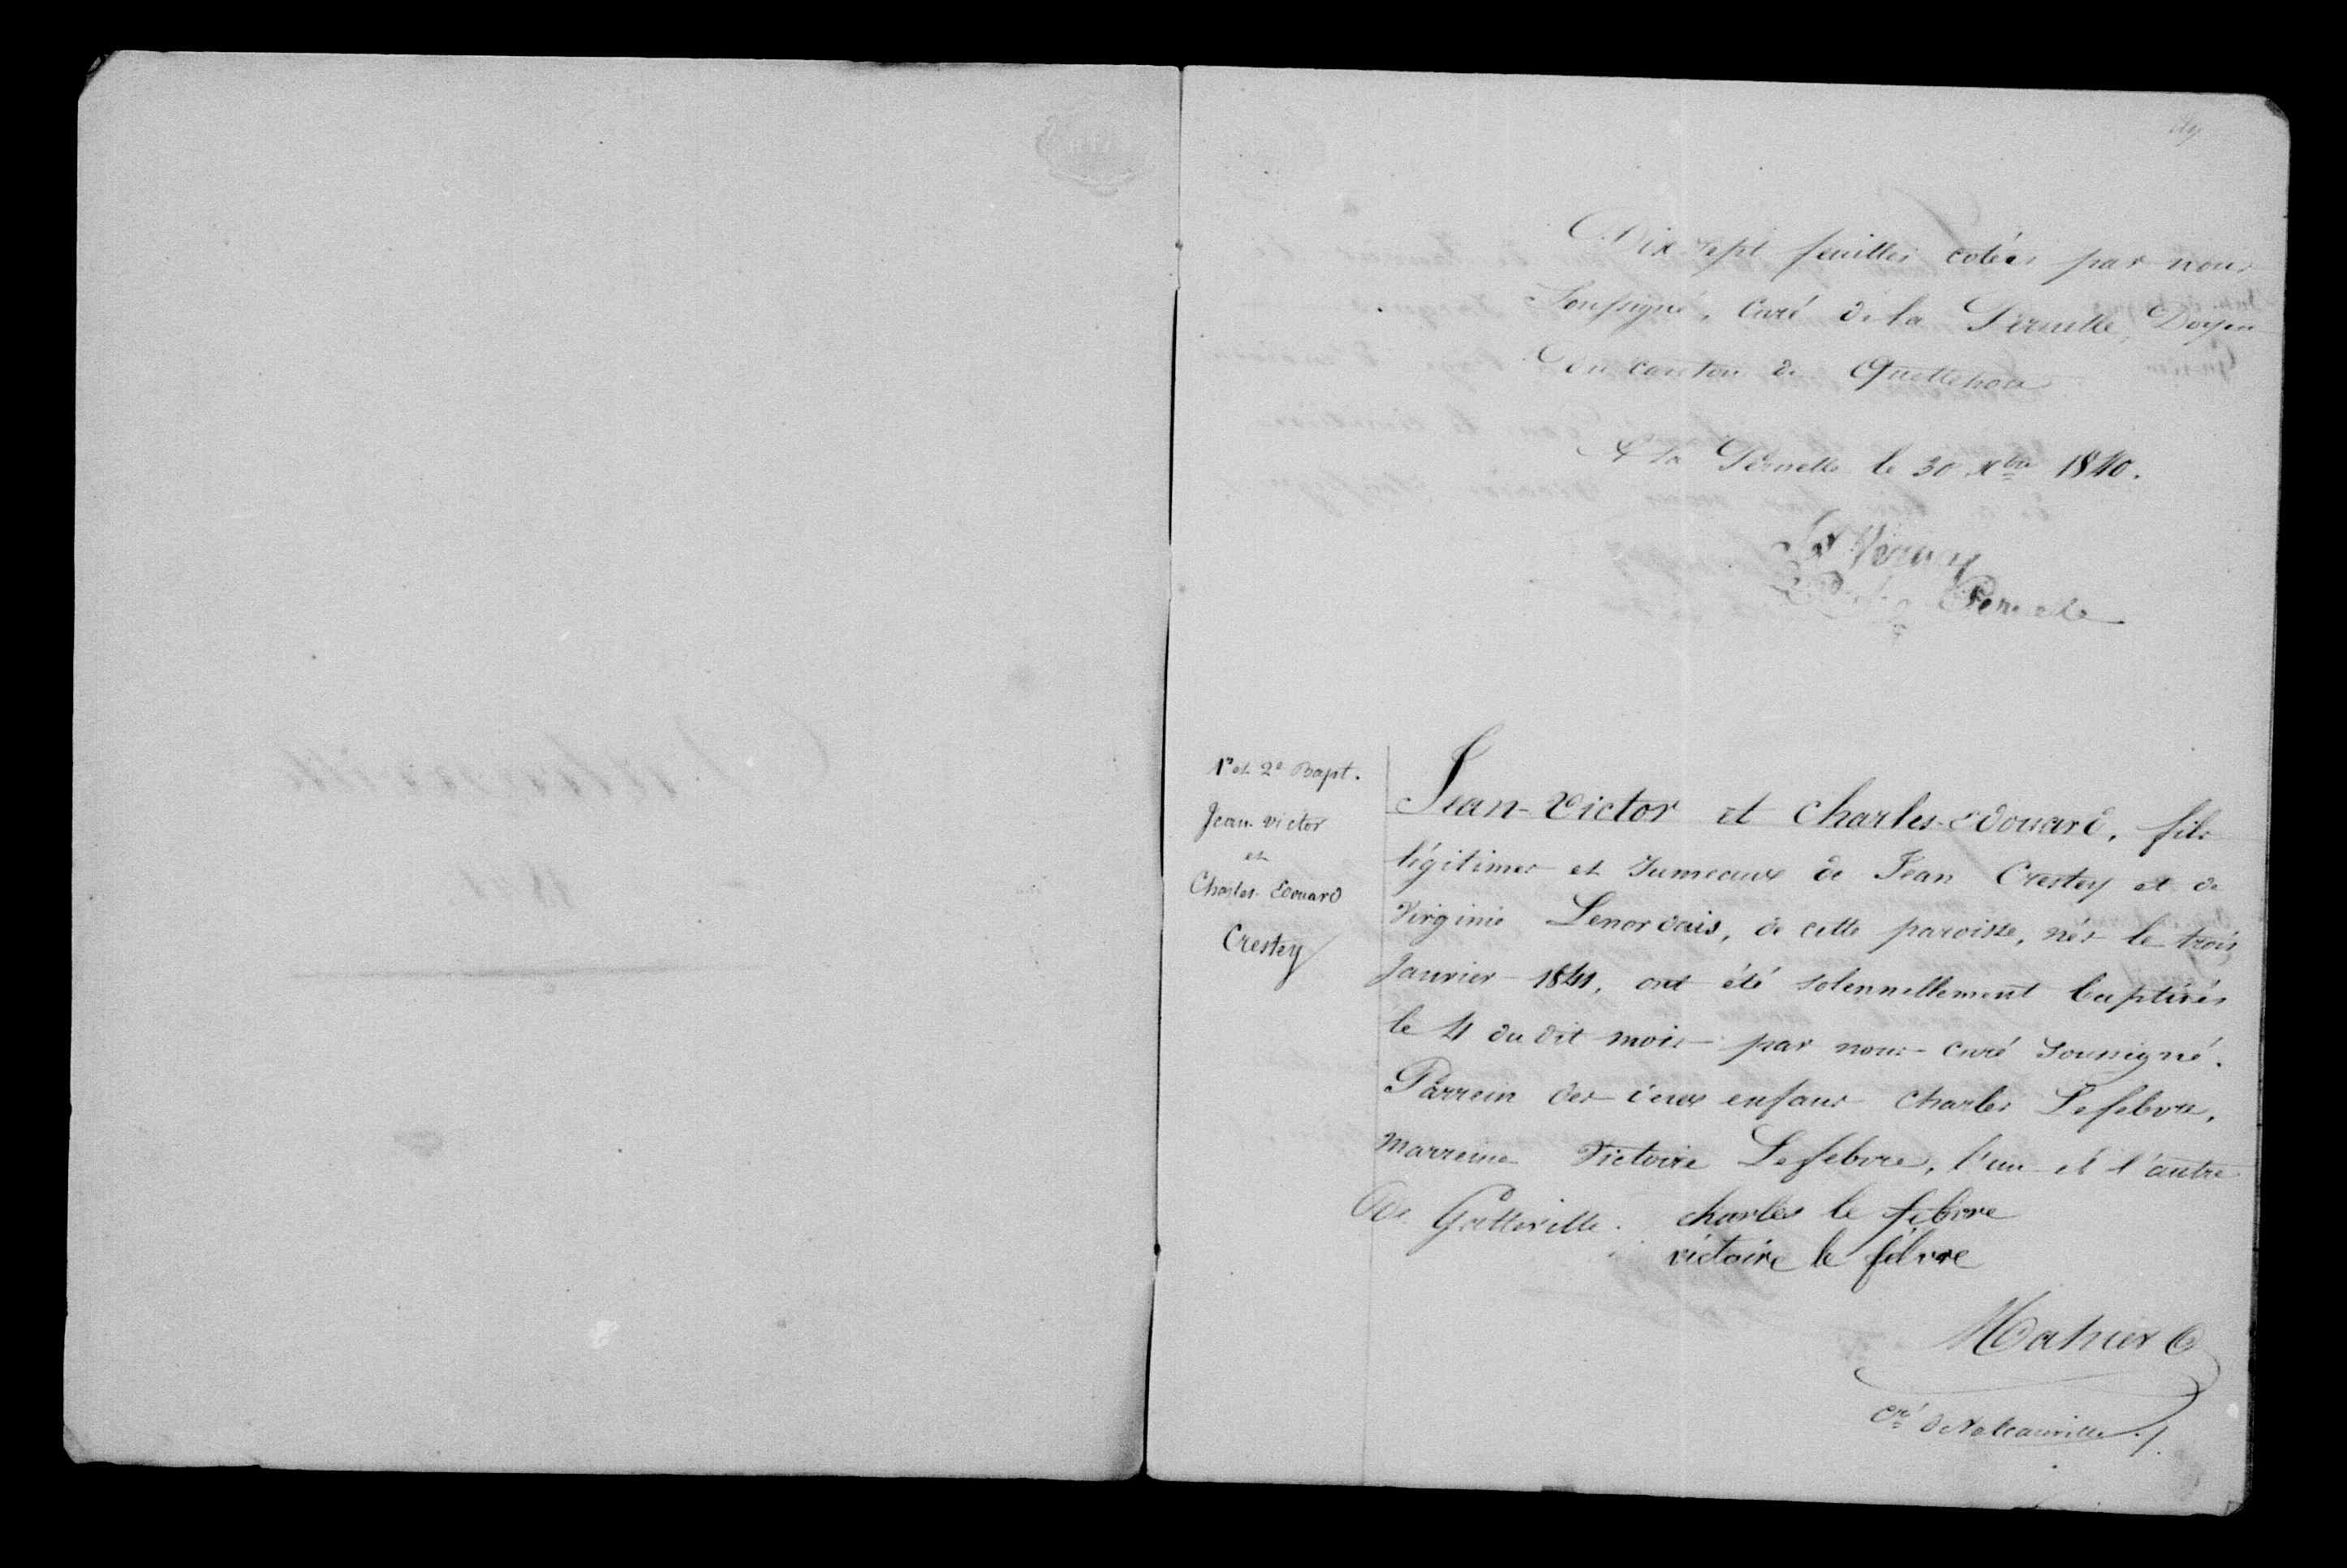 Dix sept feuilles cotées par nous
Soussigné, Curé de la Pernelle, Doyen
du canton de Quettehou
A la Pernelle le 30 Xbre 1840.
Pernelle
1er et 2e Bapt.
Jean-Victor
et
Charles-Edouard
Crestey
Jean-Victor et Charles-Edouard, fils
légitimes et Jumeaux de Jean Crestey et de
Virginie Lenordais, de cette paroisse, nés le trois
Janvier 1841, ont été solennellement baptisés
le 4 du dit mois par nous curé Soussigné.
Parrein des deux enfans Charles Lefebvre,
Marreine Victoire Lefebvre, l'un et l'autre
de Gatteville.
charles le febvre
victoire le febvre
Mahier
cré de Valcanville